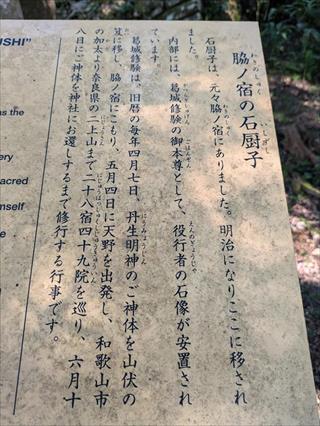 脇ノ宿の石厨子
わきのしゅく
いしずし
石厨子は、元々脇ノ宿にありました。明治になりここに移され
わきのしゅく
ました。
内部には、葛城修験の御本尊として、役行者の石像が安置され
ごほんぞん
えんのぎょうじゃ
ています。
葛城修験は、旧暦の毎年四月七日、丹生明神のご神体を山伏の
笈に移し、脇ノ宿にこもり、五月四日に天野を出発し、和歌山市
の加太より奈良県の二上山まで二十八宿四十九院を巡り、六月十
八日にご神体を神社にお還しするまで修行する行事です。
USHI"
as the
ery
sacred
imself
e